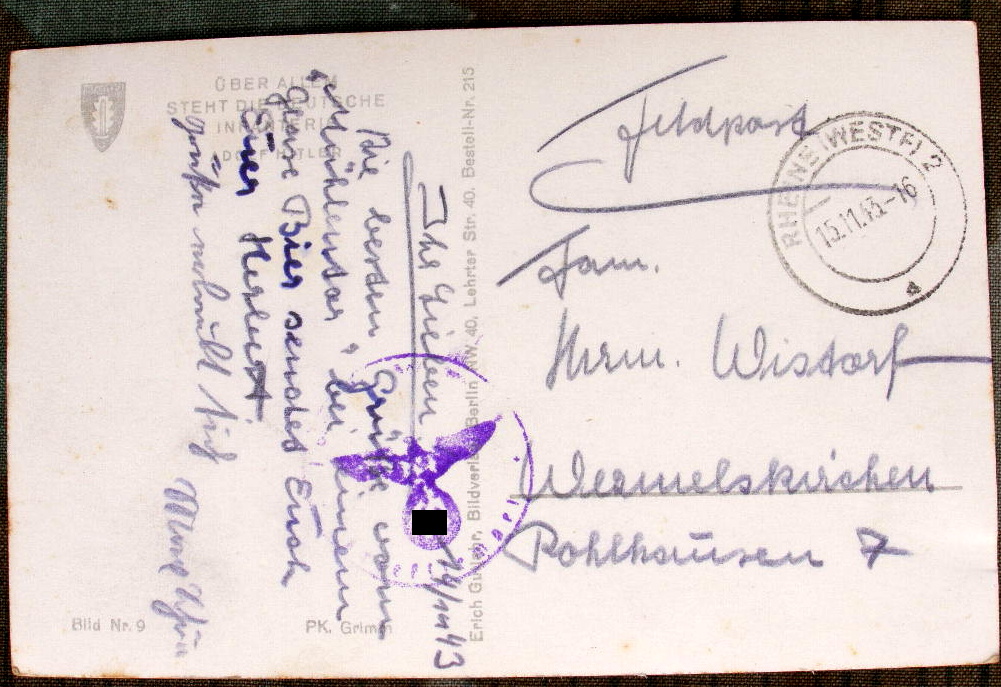 ÜBER ALLEM
STEHT DIE DEUTSCHE
INFANTERIE
ADOLF HITLER
Ihr Lieben
14/11 43
Die besten Grüße vom
"Mühlentor" bei einem
Glase Bier sendet Euch
Euer Herbert
Bild Nr. 9
PK. Grimm
Erich Gutjahr, Bildverlag Berlin NW 40, Lehrter Str. 40. Bestell-Nr. 215
Feldpost
RHEINE (WESTF) 2
15.11.43-16
a
Fam.
Herm. Wistorf
Wermelskirchen
Pohlhausen 7